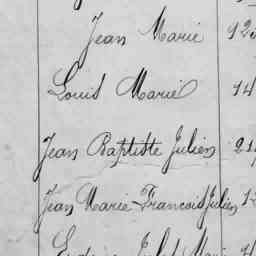 Jean Marie 125
Louis Marie 14
Jean Baptiste Julien 21
Jean Marie-Francois Julien 1
Marie